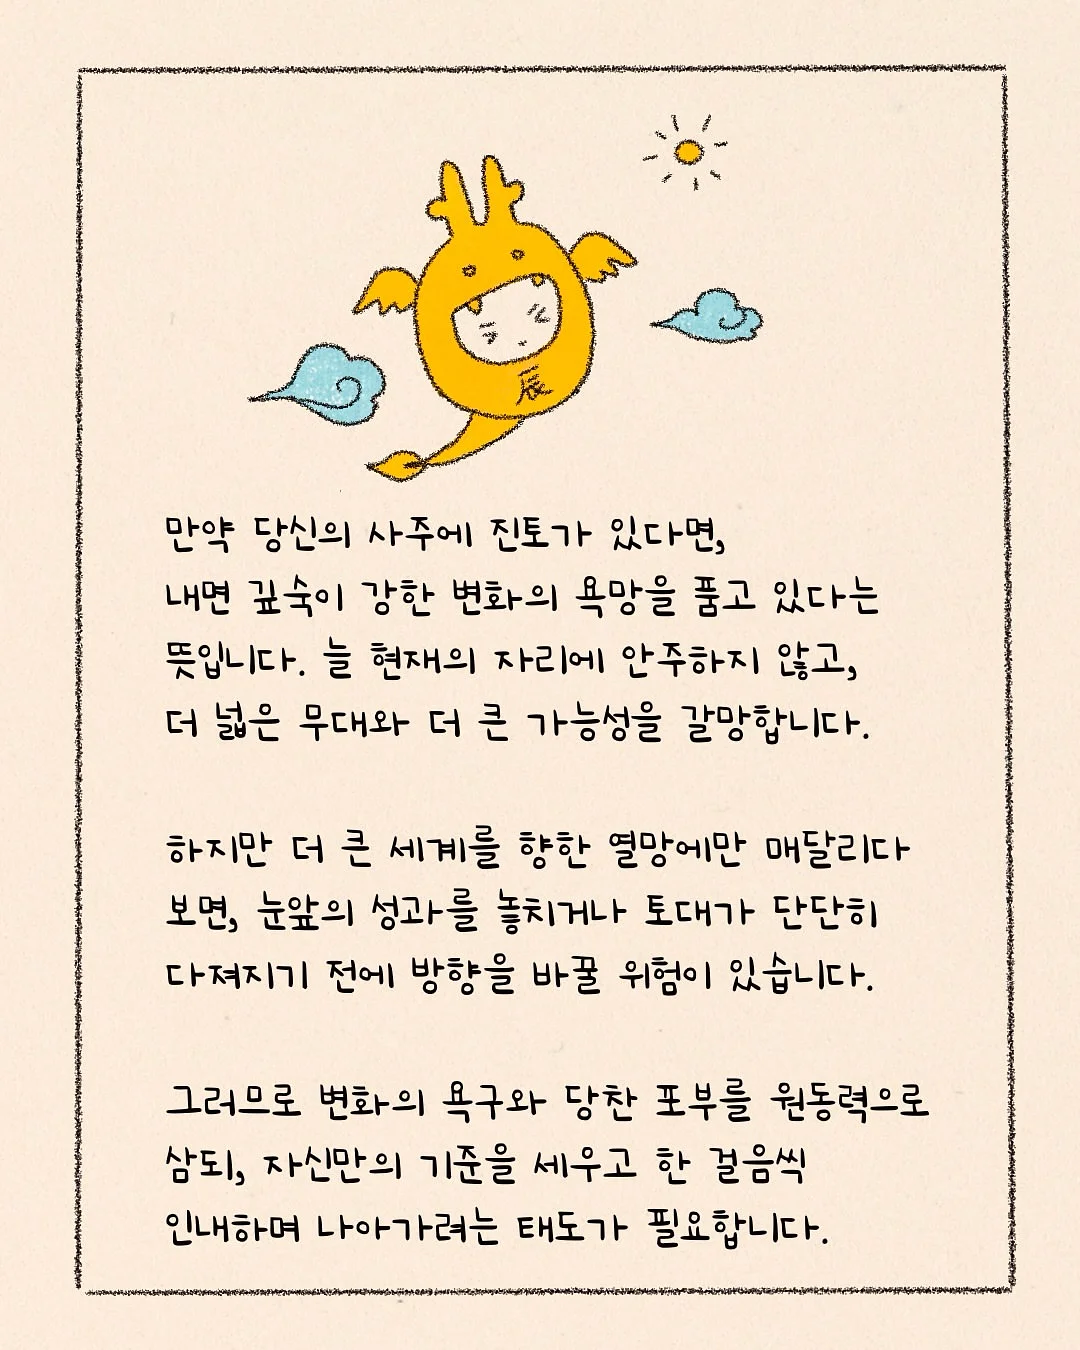 辰
만약 당신의 사주에 진토가 있다면,
내면 깊숙이 강한 변화의 욕망을 품고 있다는
뜻입니다. 늘 현재의 자리에 안주하지 않고,
더 넓은 무대와 더 큰 가능성을 갈망합니다.
하지만 더 큰 세계를 향한 열망에만 매달리다
보면, 눈앞의 성과를 놓치거나 토대가 단단히
다져지기 전에 방향을 바꿀 위험이 있습니다.
그러므로 변화의 욕구와 당찬 포부를 원동력으로
삼되, 자신만의 기준을 세우고 한 걸음씩
인내하며 나아가려는 태도가 필요합니다.